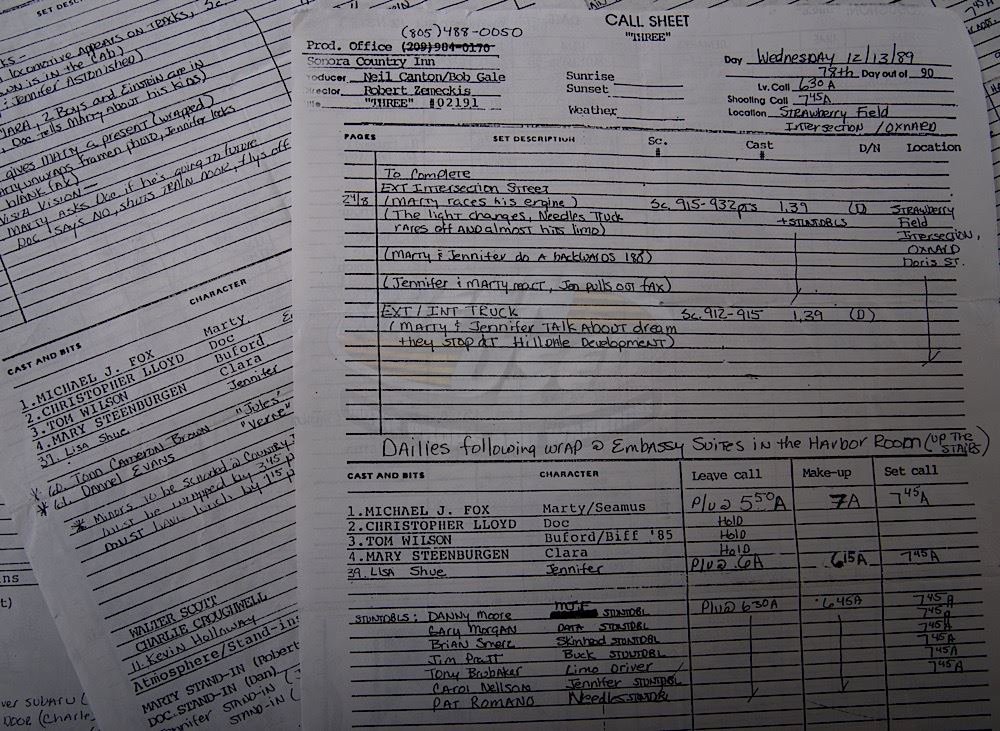 CALL SHEET
"THREE"
(805) 488-0050
Prod. Office (209) 984-0170
Sonora Country Inn
roducer Neil Canton/Bob Gale
irector Robert Zemeckis
"THREE" #02191
Sunrise
Sunset
Weather
Day Wednesday 12/13/89
78th Day out of 90
Lv. Call 630 A
Shooting Call 745A
Location Strawberry Field
Intersection / OXNARD
PAGES SET DESCRIPTION Sc. # Cast # D/N Location
To Complete
EXT Intersection Street
2 4/8 (Marty races his engine) Sc. 915-932pts 1,39 (D) Strawberry
(The light changes, Needles Truck + STUNTDBLS Field
races off AND almost hits limo) Intersection,
OXNARD
(Marty & Jennifer do A backwards 180) Doris St.
(Jennifer & Marty react, Jen pulls out fax)
EXT / INT TRUCK Sc. 912-915 1,39 (D)
(Marty & Jennifer TALK ABOUT dream
they stop AT Hilldale Development)
Dailies following wrap @ Embassy Suites in the Harbor Room (up the stairs)
CAST AND BITS Leave call Make-up Set call
1. MICHAEL J. FOX Marty/Seamus P/u @ 550A 7A 745A
2. CHRISTOPHER LLOYD Doc Hold
3. TOM WILSON Buford/Biff '85 Hold
4. MARY STEENBURGEN Clara Hold
39. Lisa Shue Jennifer P/u @ 6A 615A 745A
STUNTDBLS: DANNY Moore MJF STUNTDBL P/u @ 630A 645A 745A
Gary Morgan DATA STUNTDBL 745A
Brian Smrz Skinhead STUNTDBL 745A
Jim Pratt Buck STUNTDBL 745A
Tony Brubaker Limo Driver 745A
Carol Neilson Jennifer STUNTDBL 745A
PAT ROMANO Needles STUNTDBL
SET DESCR
locomotive Appears on TRACKS, Sc.
own is in the CAB)
Jennifer Astonished)
ARA, 2 Boys and Einstein are in
, Doc tells Marty about his kids)
gives Marty a present (wrapped)
arty unwraps framed photo, Jennifer looks
blank fax)
Marty asks Doc if he's going to future
Doc says NO, shuts TRAIN DOOR, flys off
CAST AND BITS CHARACTER
1. MICHAEL J. FOX Marty
2. CHRISTOPHER LLOYD Doc
3. TOM WILSON Buford
4. MARY STEENBURGEN Clara
39. Lisa Shue Jennifer
* 60. Todd Cameron Brown "Jules"
* 61. Dannel Evans "Verne"
* Minors to be schooled @ Country
must be wrapped by 345 p
must have lunch by 115 p
WALTER SCOTT
CHARLIE CROUGHWELL
11. Kevin Holloway
Atmosphere/Stand-ins
MARTY STAND-IN (Robert
DOC STAND-IN (Dan)
Jennifer STAND-IN
STAND-IN (
ver SUBARU (
DOOR (Charle